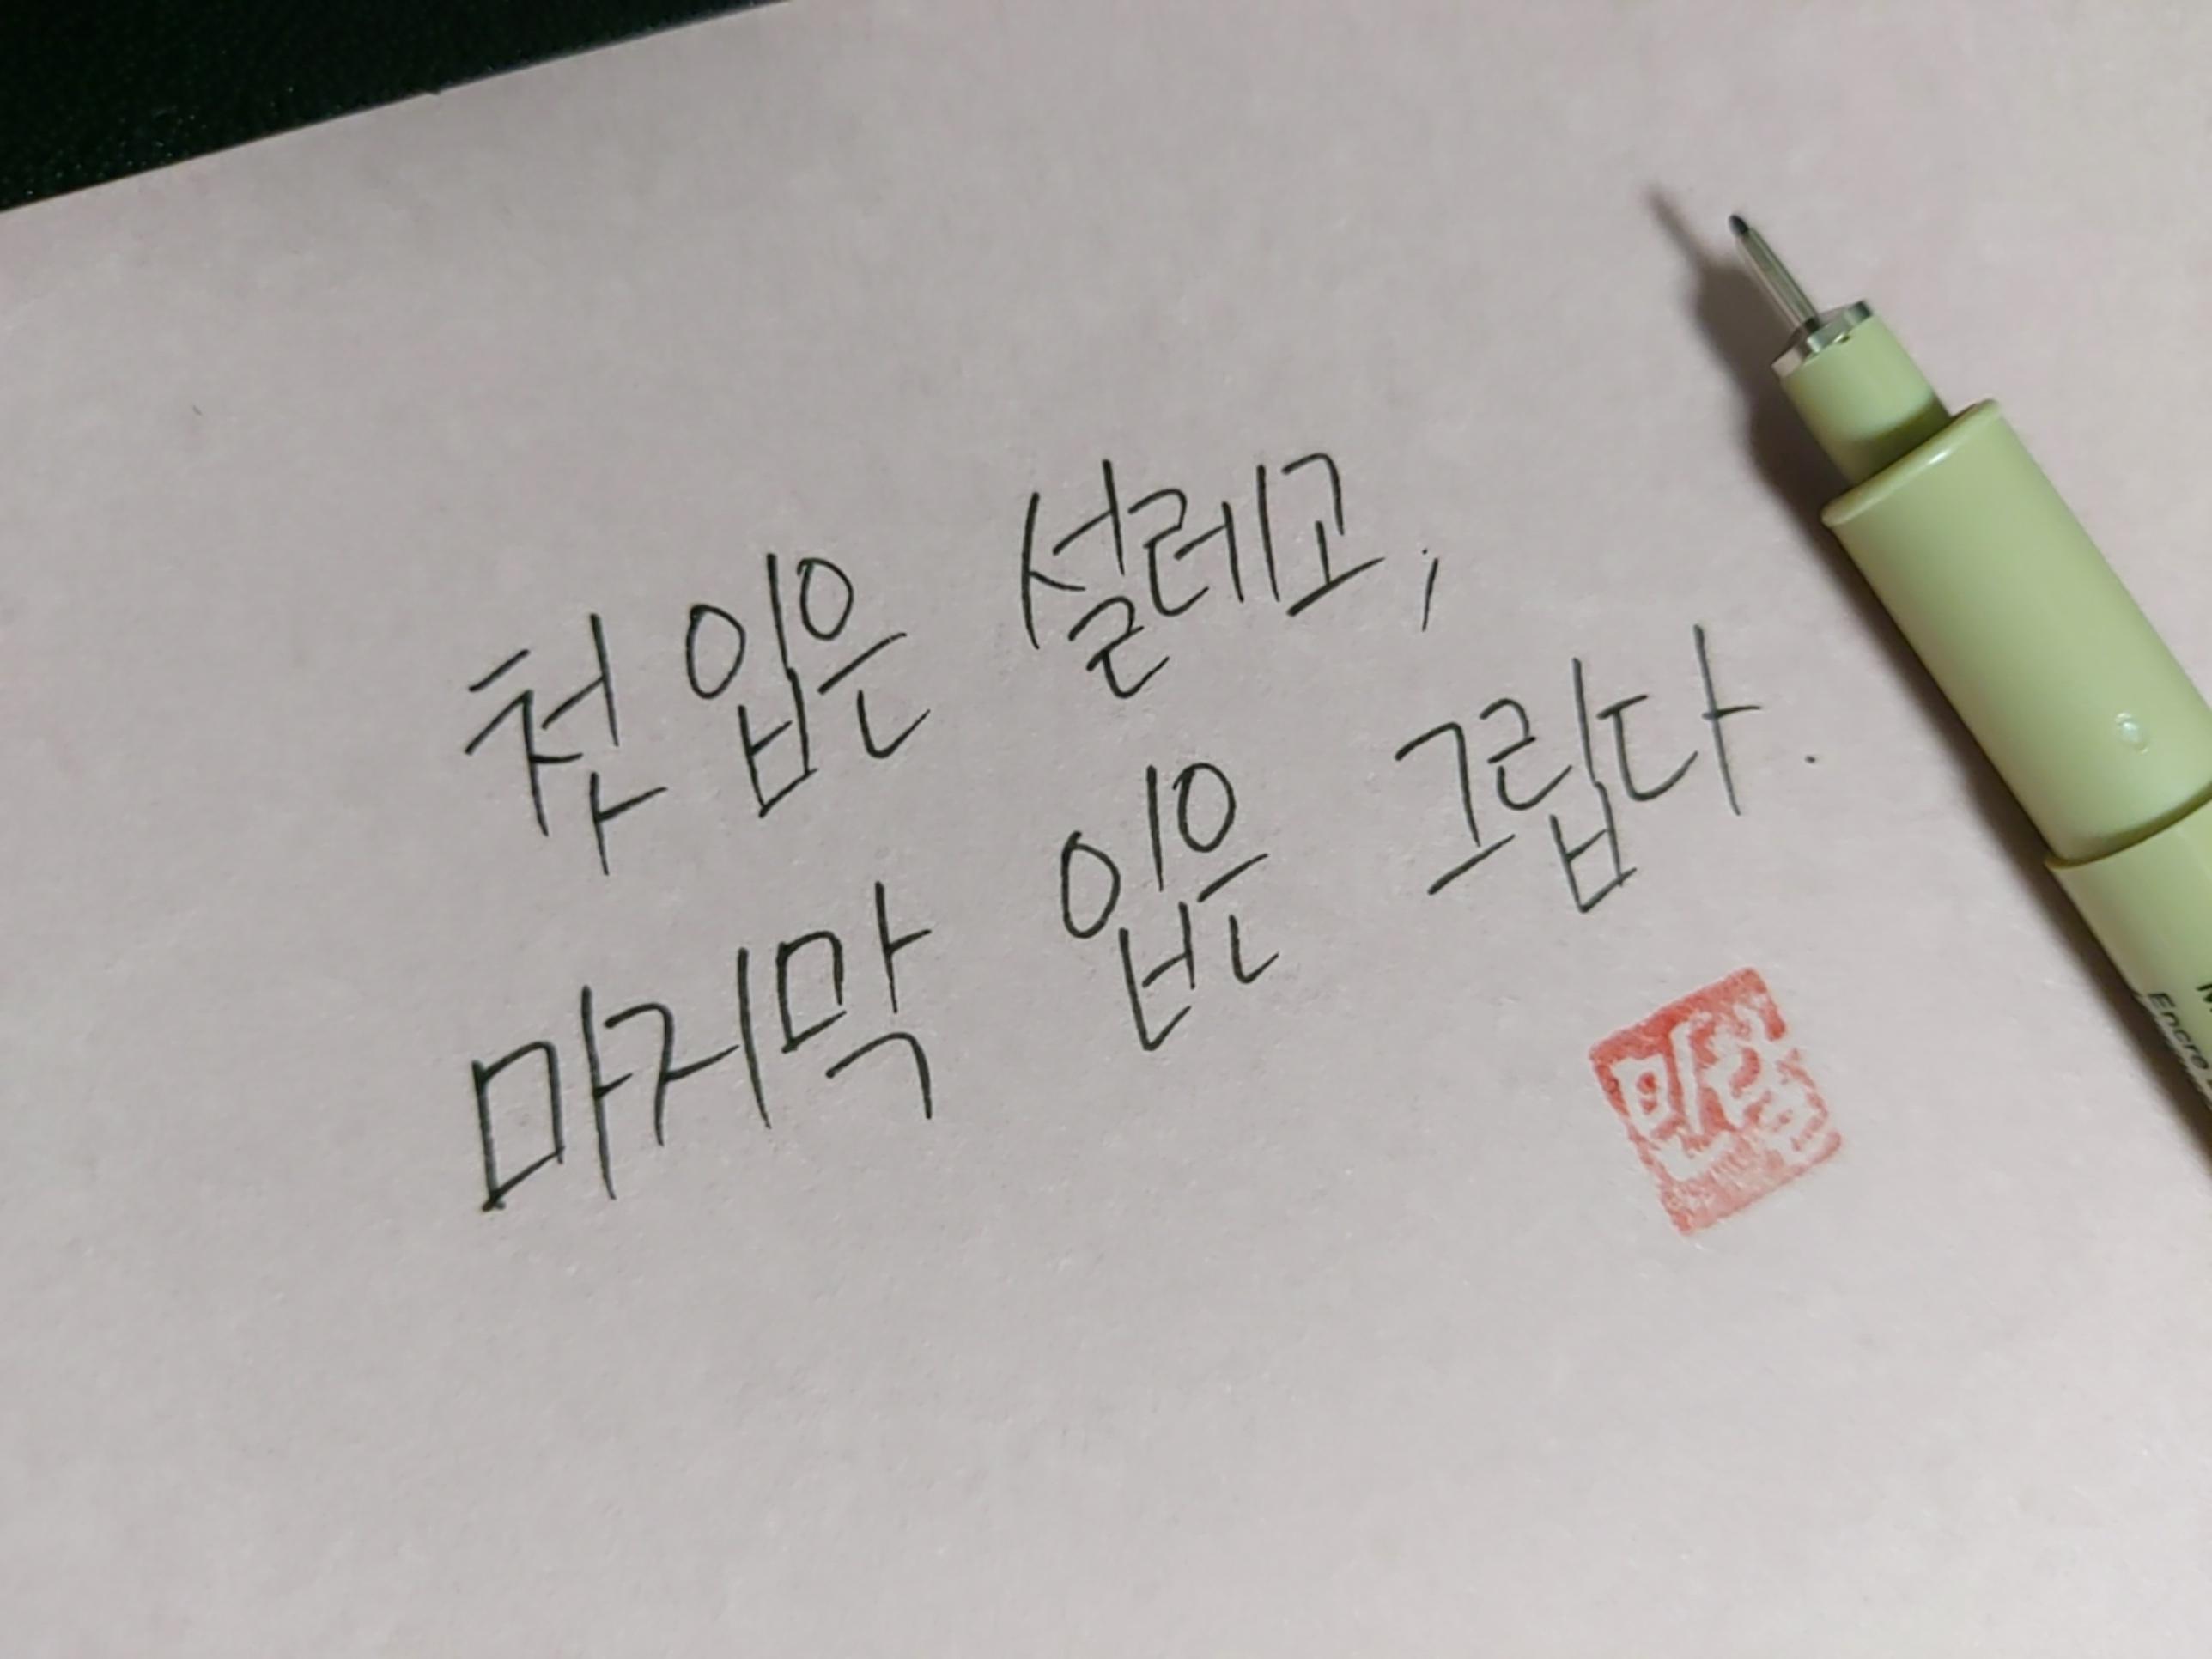 첫 입은 설레고,
마지막 입은 그립다.
Encre